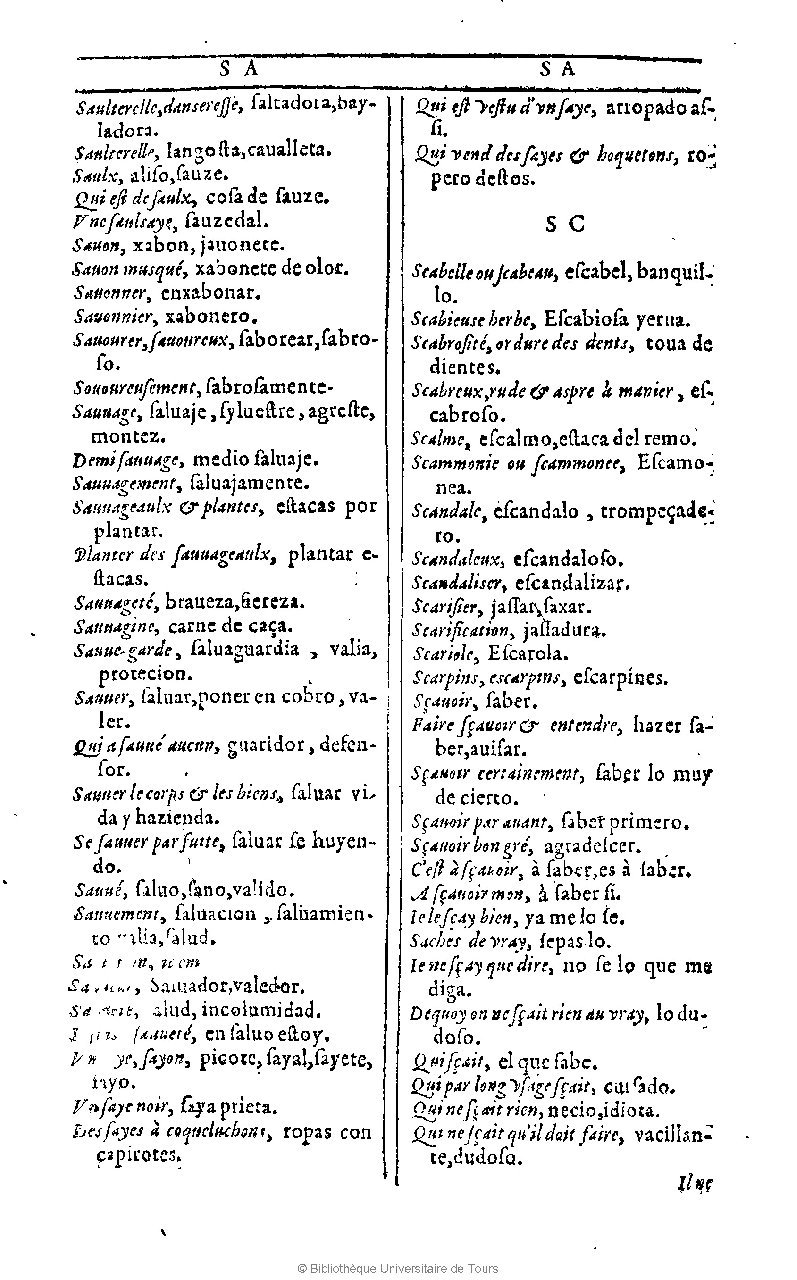 S A
Saulterelle,danseresse, ſaltadora,bay-
ladora.
Saulterelle, langoſta,caualleta.
Saulx, aliſo,ſauze.
Qui eſt de ſaulx, coſa de ſauze.
Vne ſaulsaye, ſauzedal.
Sauon, xabon, jauonete.
Sauon musqué, xabonete de olor.
Sauonner, enxabonar.
Sauonnier, xabonero.
Sauourer,ſauoureux, ſaborear,ſabro-
ſo.
Sououreuſement, ſabroſamente-
Sauuage, ſaluaje,ſylueſtre, agreſte,
montez.
Demi ſauuage, medio ſaluaje.
Sauuagement, ſaluajamente.
Sauuageaulx & plantes, eſtacas por
plantar.
Planter des ſauuageaulx, plantar e-
ſtacas.
Sauuageté, braueza,fiereza.
Sauuagine, carne de caça.
Sauue-garde, ſaluaguardia , valia,
protecion.
Sauuer, ſaluar,poner en cobro, va-
ler.
Qui a ſauué aucun, guaridor, defen-
ſor.
Sauuer le corps & les biens, ſaluar vi-
da y hazienda.
Se ſauuer par fuitte, ſaluar ſe huyen-
do.
Sauué, ſaluo,ſano,valido.
Sauuement, ſaluacion , ſaluamien-
to ſalud.
Saluador,valedor.
incolumidad.
en ſaluo eſtoy.
ſayon, picote, ſayal,ſayete,
ſayo.
Vn ſaye noir, ſaya prieta.
Les ſayes à coqueluchons, ropas con
çapirotes.
S A
Qui eſt veſtu d'vn ſaye, arropado aſ-
ſi.
Qui vend des ſayes & hoquetons, ro-
pero deſtos.
S C
Scabelle ou ſcabeau, eſcabel, banquil-
lo.
Scabieuse herbe, Eſcabioſa yerua.
Scabroſité, ordure des dents, toua de
dientes.
Scabreux,rude & aspre à manier, eſ-
cabroſo.
Scalme, eſcalmo,eſtaca del remo.
Scammonie ou ſcammonee, Eſcamo-
nea.
Scandale, eſcandalo , trompeçade-
ro.
Scandaleux, eſcandaloſo.
Scandaliser, eſcandalizar.
Scarifier, jaſſar,ſaxar.
Scarification, jaſſadura.
Scariole, Eſcarola.
Scarpins, escarpins, eſcarpines.
Sçauoir, ſaber.
Faire ſçauoir & entendre, hazer ſa-
ber,auiſar.
Sçauoir certainement, ſaber lo muy
de cierto.
Sçauoir par auant, ſaber primero.
Sçauoir bon gré, agradeſcer.
C'eſt à ſçauoir, à ſaber,es à ſaber.
A ſçauoir mon, à ſaber ſi.
Ie le ſçay bien, ya me lo ſe.
Saches de vray, ſepas lo.
Ie ne ſçay que dire, no ſe lo que me
diga.
Dequoy on ne ſçait rien au vray, lo du-
doſo.
Qui ſçait, el que ſabe.
Qui par long vſage ſçait, cuſado.
Qui ne ſçait rien, necio,idiota.
Qui ne ſçait qu'il doit faire, vacillan-
te,dudoſo.
Il ne
© Bibliothèque Universitaire de Tours